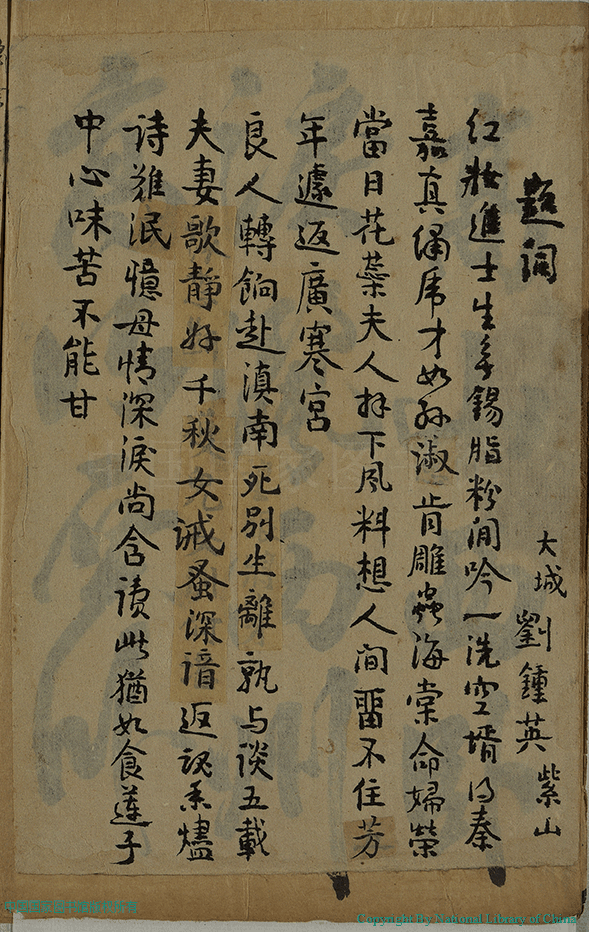 題詞
大城劉鍾英紫山
紅妝進士生無錫脂粉閒吟一洗空壻得秦
嘉真繡虎才如孫淑肯雕蟲海棠命婦榮
當日花蘂夫人拜下風料想人間畱不住芳
年遽返廣寒宮
良人轉餉赴滇南死別生離孰与談五載
夫妻歌靜好千秋女誡蚤深諳返魂香燼
詩難泯憶母情深淚尚含讀此猶如食蓮子
中心味苦不能甘
Copyright By National Library of China